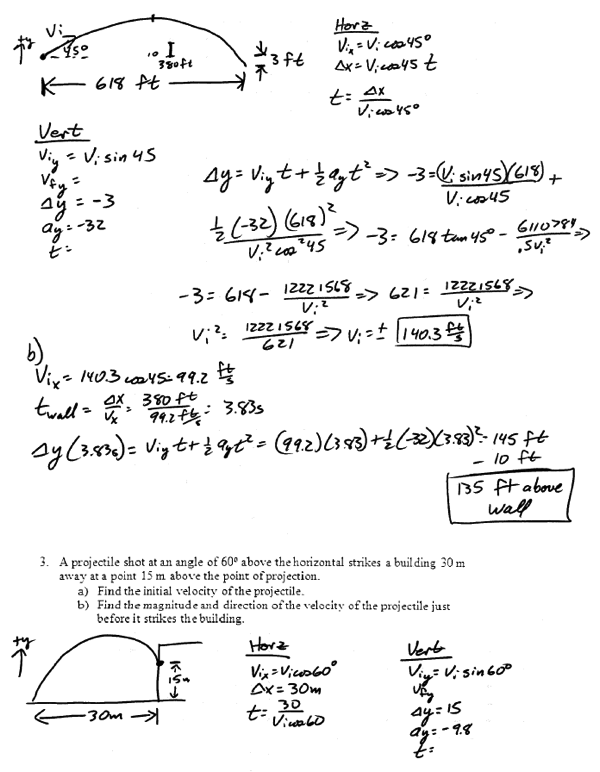 Vi
+y
45°
10 I
380ft
3 ft
618 ft
Horz
Vix = Vi cos45°
Δx = Vi cos45 t
t = Δx / Vi cos45°
Vert
Viy = Vi sin 45
Vfy =
Δy = -3
ay = -32
t =
Δy = Viy t + ½ ay t² => -3 = (Vi sin45)(618) / Vi cos45 +
½ (-32) (618)² / Vi² cos² 45 => -3 = 618 tan 45° - 6110784 / .5Vi² =>
-3 = 618 - 12221568 / Vi² => 621 = 12221568 / Vi² =>
Vi² = 12221568 / 621 => Vi = ± 140.3 ft/s
b)
Vix = 140.3 cos45 = 99.2 ft/s
twall = Δx / Vx = 380 ft / 99.2 ft/s = 3.83s
Δy (3.83s) = Viy t + ½ ay t² = (99.2)(3.83) + ½ (-32)(3.83)² = 145 ft
- 10 ft
135 ft above
wall
3. A projectile shot at an angle of 60° above the horizontal strikes a building 30 m
away at a point 15 m above the point of projection.
a) Find the initial velocity of the projectile.
b) Find the magnitude and direction of the velocity of the projectile just
before it strikes the building.
+y
15m
30m
Horz
Vix = Vi cos60°
Δx = 30m
t = 30 / Vi cos60
Vert
Viy = Vi sin 60°
Vfy
Δy = 15
ay = -9.8
t =